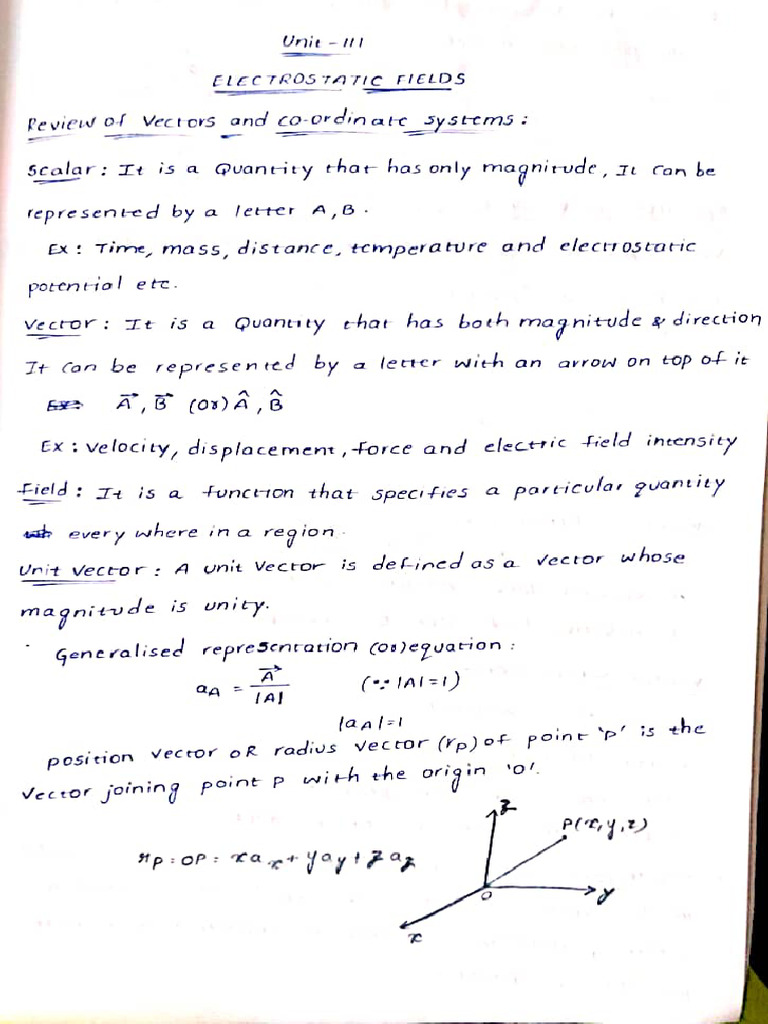 Unit - III
ELECTROSTATIC FIELDS
Review of Vectors and co-ordinate systems :
Scalar : It is a Quantity that has only magnitude, It can be
represented by a letter A, B.
Ex : Time, mass, distance, temperature and electrostatic
potential etc.
Vector : It is a Quantity that has both magnitude & direction
It can be represented by a letter with an arrow on top of it
A⃗, B⃗ (or) Â, B̂
Ex : velocity, displacement, force and electric field intensity
Field : It is a function that specifies a particular quantity
every where in a region.
Unit Vector : A unit vector is defined as a vector whose
magnitude is unity.
Generalised representation (or) equation :
a_A = A⃗ / |A| (∵ |A| = 1)
|a_A| = 1
position vector OR radius vector (r_p) of point 'p' is the
Vector joining point P with the origin 'O'.
z
P(x, y, z)
r_p = OP = x a_x + y a_y + z a_z
O
y
x